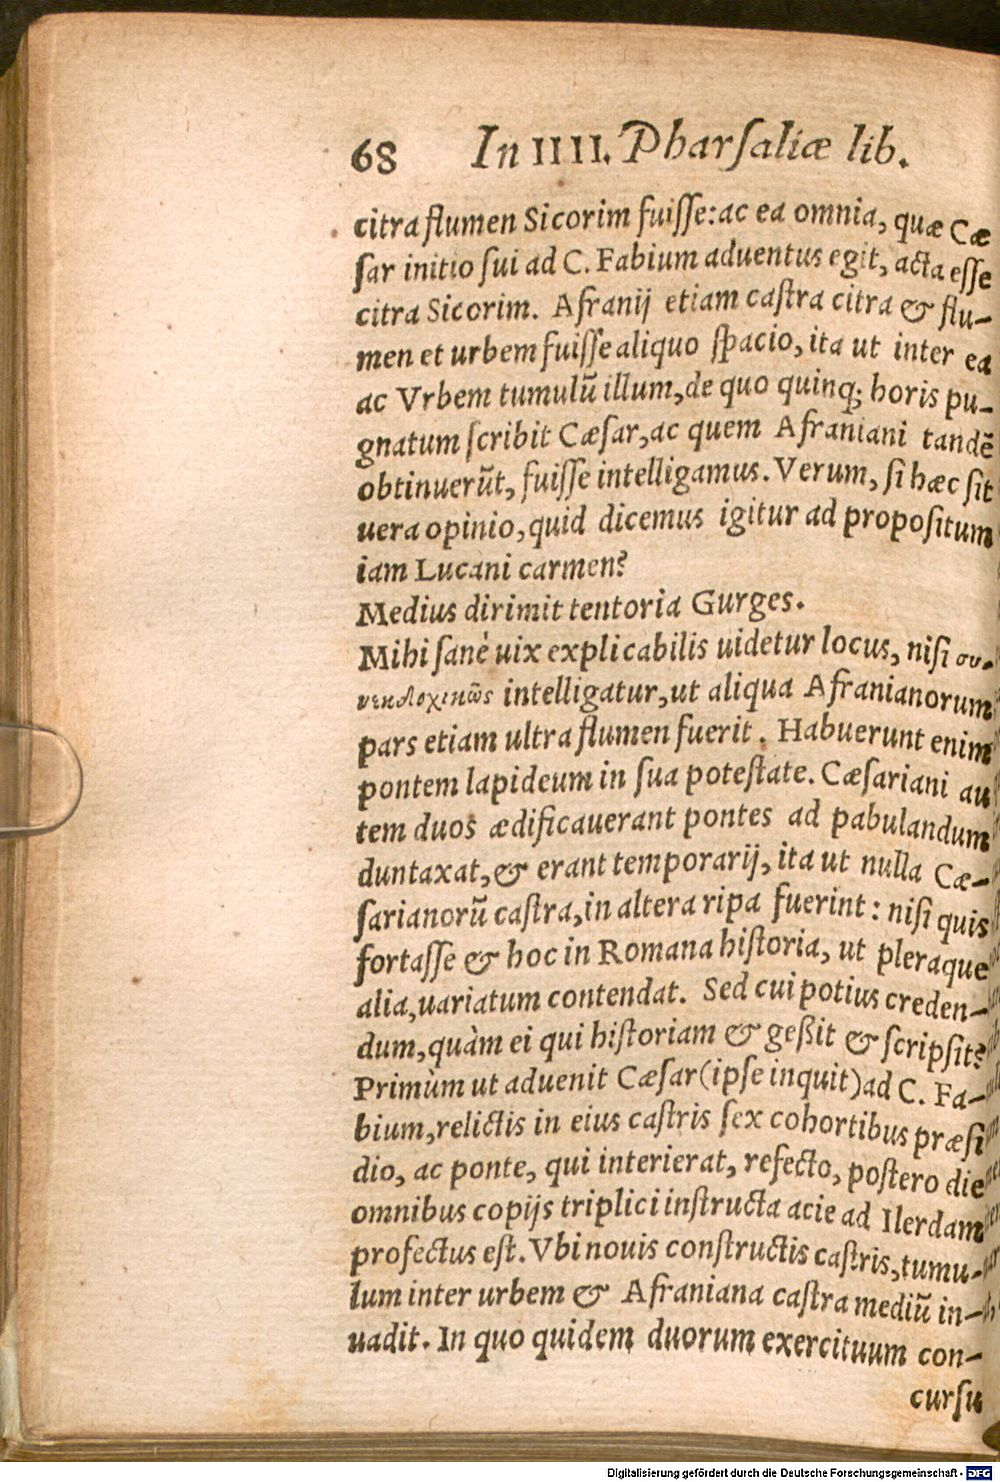 68 In IIII. Pharſaliæ lib.
citra flumen Sicorim fuiſſe: ac ea omnia, quæ Cæ
ſar initio ſui ad C. Fabium aduentus egit, acta eſſe
citra Sicorim. Afranij etiam caſtra citra & flu-
men et urbem fuiſſe aliquo ſpacio, ita ut inter ea
ac Vrbem tumulū illum, de quo quinq; horis pu-
gnatum ſcribit Cæſar, ac quem Afraniani tandē
obtinuerūt, fuiſſe intelligamus. Verum, ſi hæc ſit
uera opinio, quid dicemus igitur ad propoſitum
iam Lucani carmen?
Medius dirimit tentoria Gurges.
Mihi ſanè uix explicabilis uidetur locus, niſi συ-
νεκδοχικῶς intelligatur, ut aliqua Afranianorum
pars etiam ultra flumen fuerit. Habuerunt enim
pontem lapideum in ſua poteſtate. Cæſariani au
tem duos ædificauerant pontes ad pabulandum
duntaxat, & erant temporarij, ita ut nulla Cæ-
ſarianorū caſtra, in altera ripa fuerint: niſi quis
fortaſſe & hoc in Romana hiſtoria, ut pleraque
alia, uariatum contendat. Sed cui potius creden-
dum, quàm ei qui hiſtoriam & geßit & ſcripſit?
Primùm ut aduenit Cæſar (ipſe inquit) ad C. Fa-
bium, relictis in eius caſtris ſex cohortibus præſi
dio, ac ponte, qui interierat, refecto, poſtero die
omnibus copijs triplici inſtructa acie ad Ilerdam
profectus eſt. Vbi nouis conſtructis caſtris, tumu-
lum inter urbem & Afraniana caſtra mediū in-
uadit. In quo quidem duorum exercituum con-
curſu
Digitalisierung gefördert durch die Deutsche Forschungsgemeinschaft - DFG